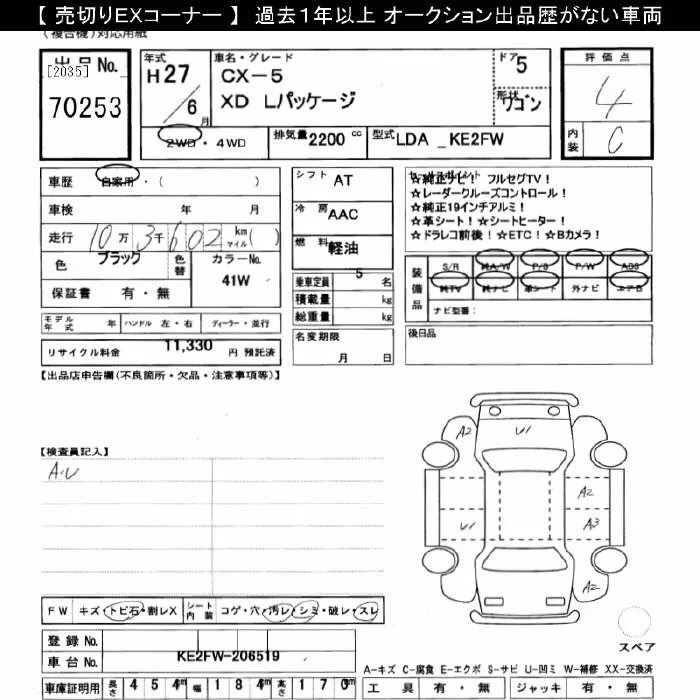 【 売切りEXコーナー 】 過去1年以上 オークション出品歴がない車両
(複合機)対応用紙
出品No.
[2035]
70253
年式
H27
/6月
車名・グレード
CX-5
XD Lパッケージ
ドア
5
形状
ワゴン
2WD・4WD
排気量 2200 cc
型式 LDA _KE2FW
評価点
4
内装
C
車歴 自家用・( )
車検 年 月
走行 10万3千602 km マイル( )
色 ブラック 色替
カラーNo.
41W
保証書 有・無
モデル年式 年 ハンドル 左・右 ディーラー・並行
リサイクル料金 11,330 円 預託済
シフト AT
冷房 AAC
燃料 軽油
乗車定員 5 名
積載量 kg
総重量 kg
名変期限
月 日
セールスポイント
☆純正ナビ! フルセグTV!
☆レーダークルーズコントロール!
☆純正19インチアルミ!
☆革シート!☆シートヒーター!
☆ドラレコ前後!☆ETC!☆Bカメラ!
装備品
S/R 純A/W P/S P/W ABS
純TV 純ナビ 革シート 外ナビ エアB
ナビ型番:
後日品
【出品店申告欄(不良箇所・欠品・注意事項等)】
【検査員記入】
A.U
A2
U1
A2
U1
A3
A2
スペア
FW キズ・トビ石・割レX
シート内装 コゲ・穴・汚レ・シミ・破レ・スレ
登録No.
車台No. KE2FW-206519
車庫証明用 長さ 454cm 幅 184cm 高さ 170cm
A-キズ C-腐食 E-エクボ S-サビ U-凹ミ W-補修 XX-交換済
工具 有・無 ジャッキ 有・無